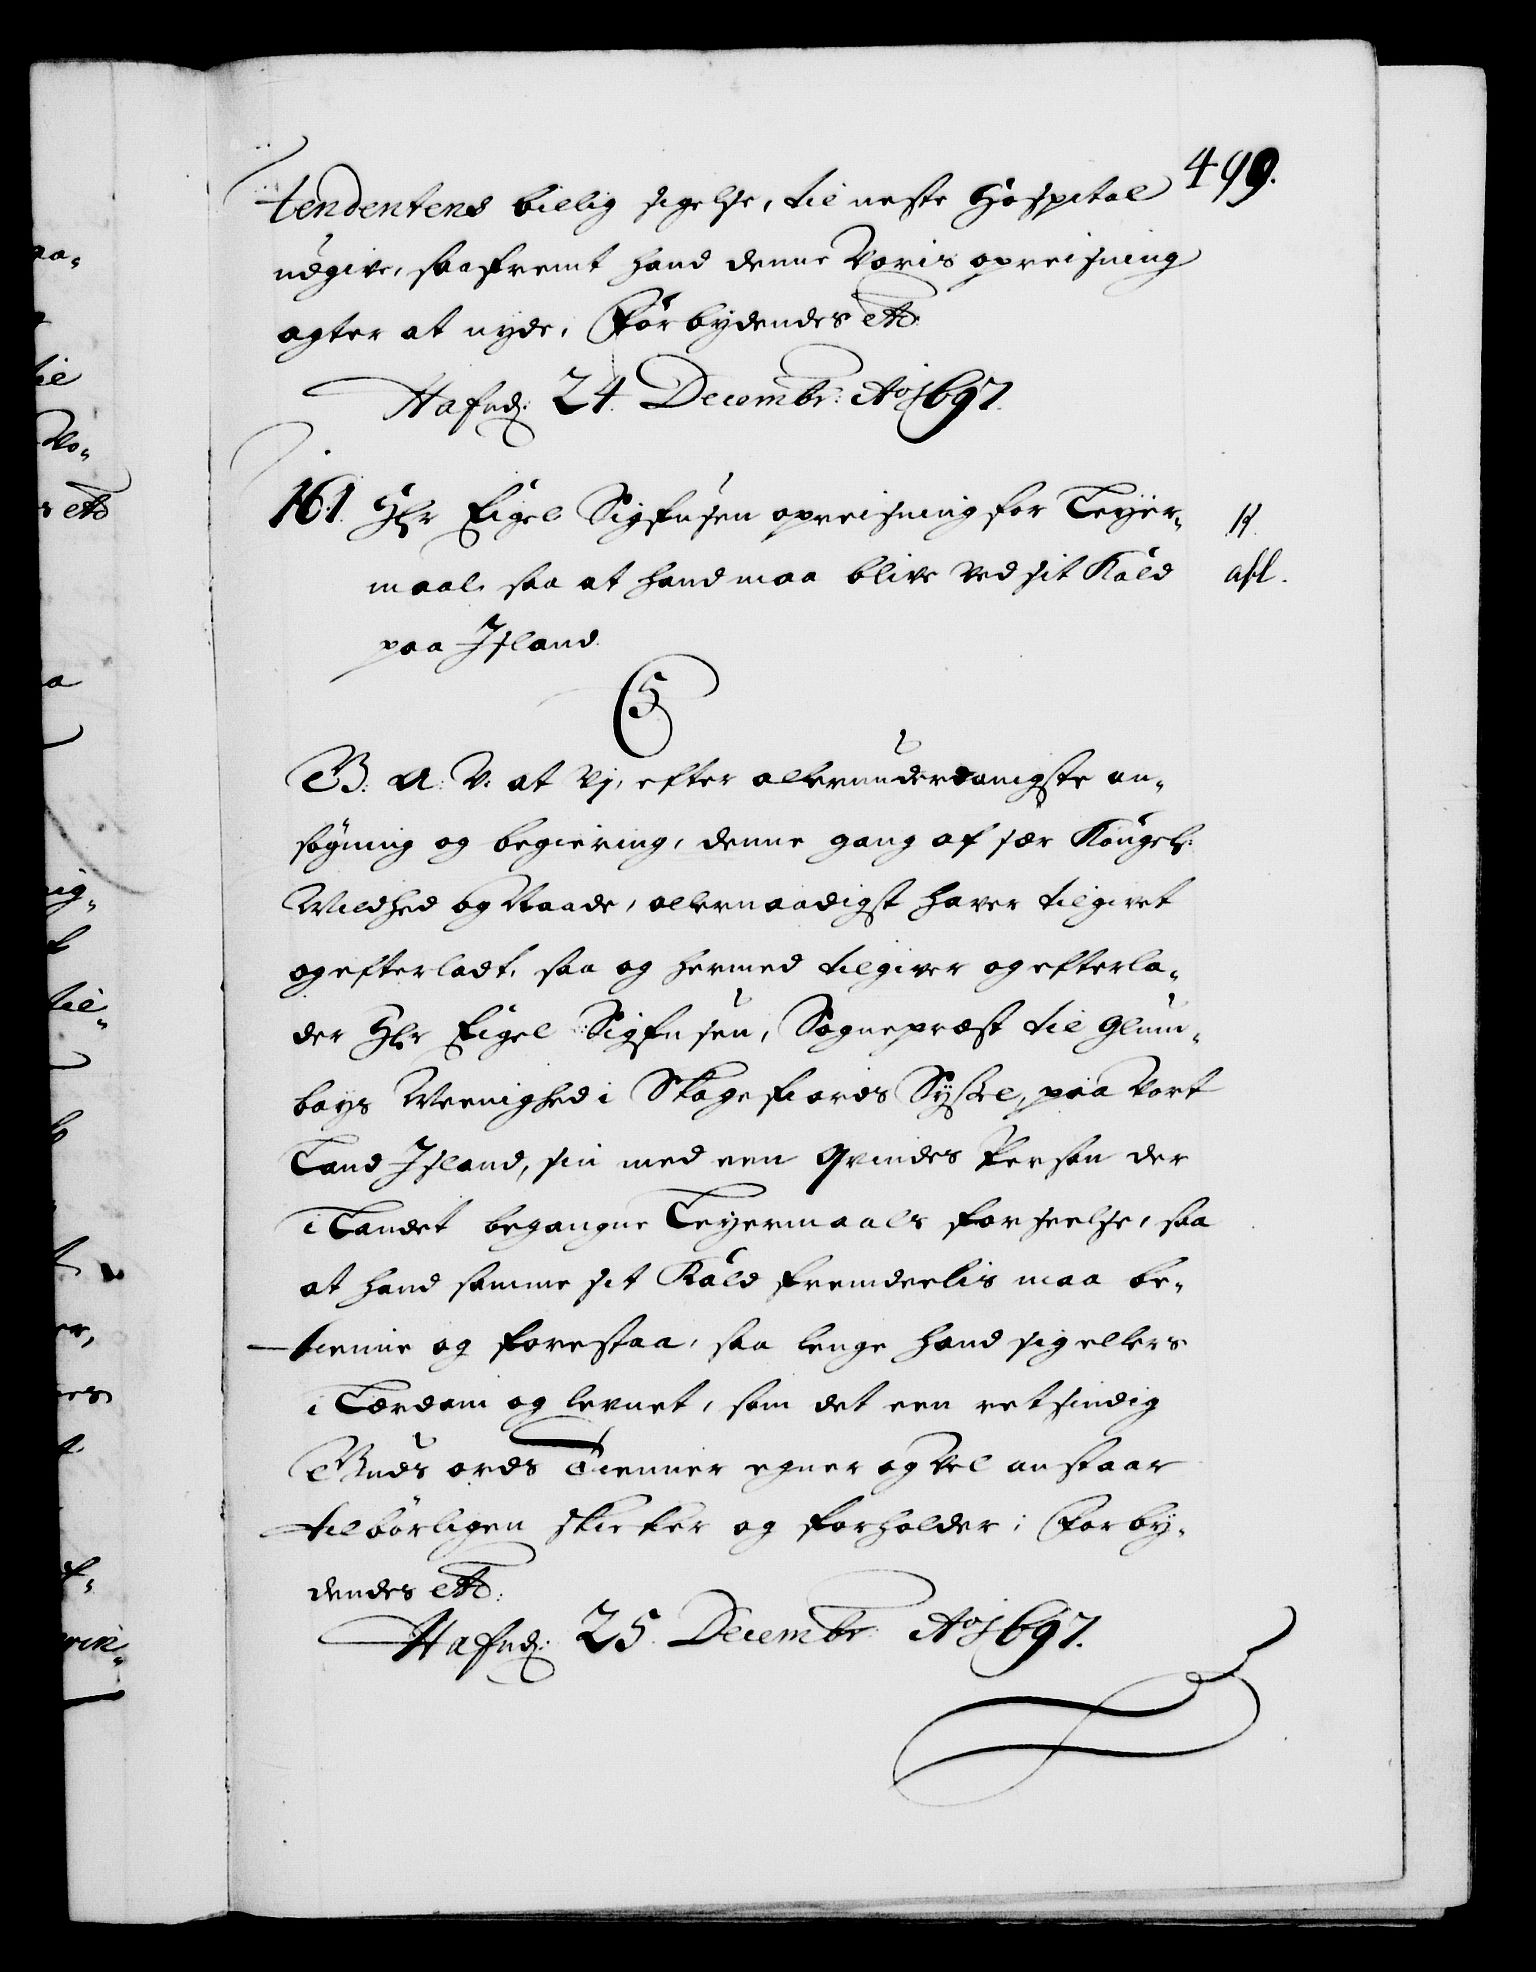 499.
tendentens billig sigelse, til neste Hospital
udgive, saafremt hand denne Voris opreisning
agter at nyde, Forbydendes etc.
Hafnæ: 24. Decembr: Ao 1697.
161. Hr Eigel Sigfusen opreisning for Leyer-
maal, saa at hand maa blive ved sit Kald
paa Island.
C5
G. A. V. at Vj, efter allerunderdanigste an-
søgning og begiering, denne gang af sær Kongel:
Mildhed og Naade, allernaadigst haver tilgivet
og efterladt, saa og hermed tilgiver og efterla-
der Hr Eigel Sigfusen, Sognepræst til Glum-
bays Meenighed i Skagefiords Syssel, paa Vort
Land Island, sin med een Qvindes Person der
i Landet begangne Leyermaals forseelse, saa
at hand samme sit Kald fremdeelis maa be-
tienne og forestaa, saa lenge hand sig ellers
i Lerdom og levnet, som det een retsindig
Guds ords Tienner egner og vel anstaar
tilbørligen skicker og forholder; Forby-
dendes etc:
Hafnæ: 25. Decembr: Ao 1697.